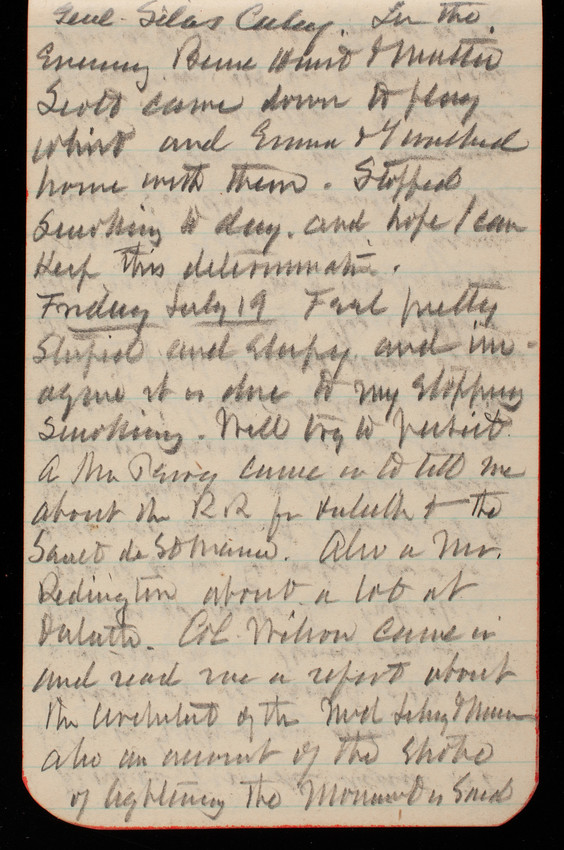 Genl. Silas Casey. In the
Evening Bertie Hunt & Mattie
Scott came down to play
whist and Emma & I walked
home with them. Stopped
smoking to day. and hope I can
keep this determination.
Friday July 19 Feel pretty
stupid and sleepy and im-
agine it is due to my stopping
smoking. Will try to persist.
A Mr Perry came in to tell me
about the R.R. for Duluth & the
Sault de St Marie. Also a Mr.
Redington about a lot at
Duluth. Col. Wilson came in
and read me a report about
the architect of the Med Liby &
also an account of the stroke
of lightning the Monument